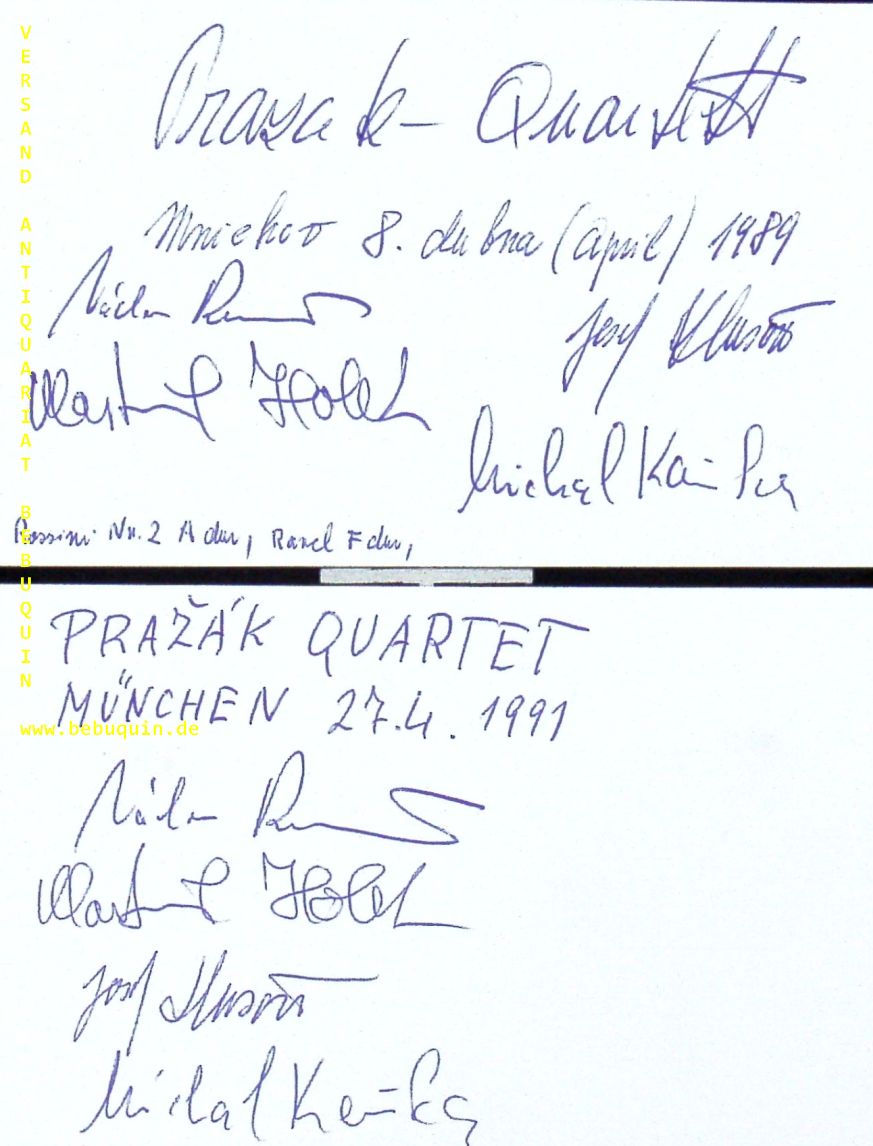 Prazak - Quartett
Mnichov 8. dubna (April) 1989
Václav
Josef Klusoň
Vlastimil Holek
Michal Kaňka
Rossini Nr. 2 A dur, Ravel F dur,
PRAŽÁK QUARTET
MÜNCHEN 27.4. 1991
Václav
Vlastimil Holek
Josef Klusoň
Michal Kaňka
VERSAND ANTIQUARIAT BEBUQUIN
www.bebuquin.de